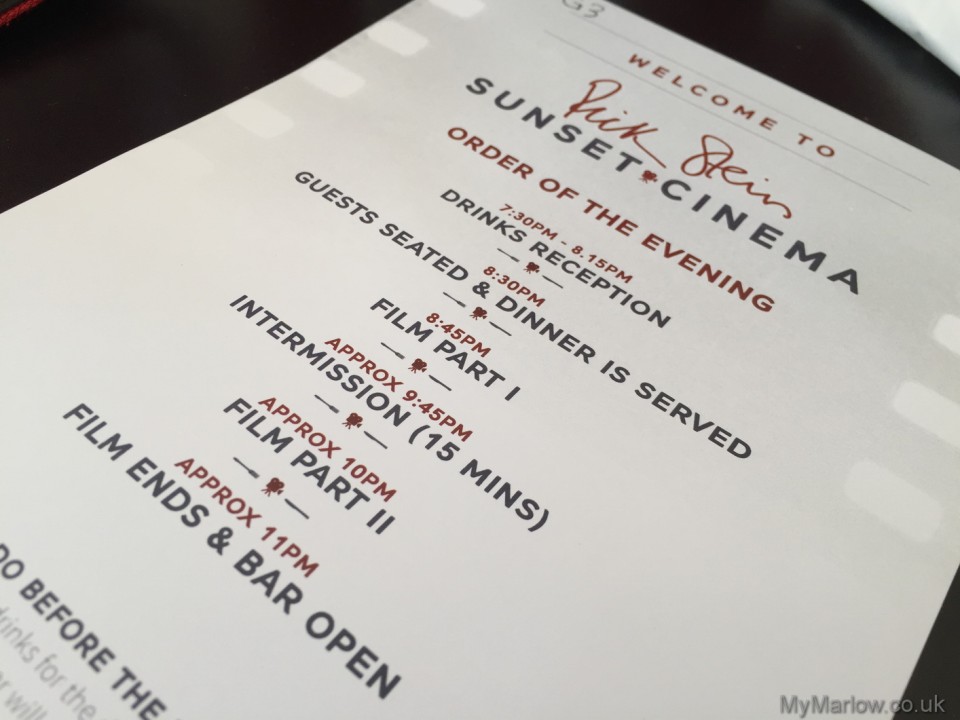 G3
WELCOME TO
Rick Stein
SUNSET CINEMA
ORDER OF THE EVENING
7:30PM - 8.15PM
DRINKS RECEPTION
8:30PM
GUESTS SEATED & DINNER IS SERVED
8:45PM
FILM PART I
APPROX 9:45PM
INTERMISSION (15 MINS)
APPROX 10PM
FILM PART II
APPROX 11PM
FILM ENDS & BAR OPEN
DO BEFORE THE
drinks for the
will
MyMarlow.co.uk